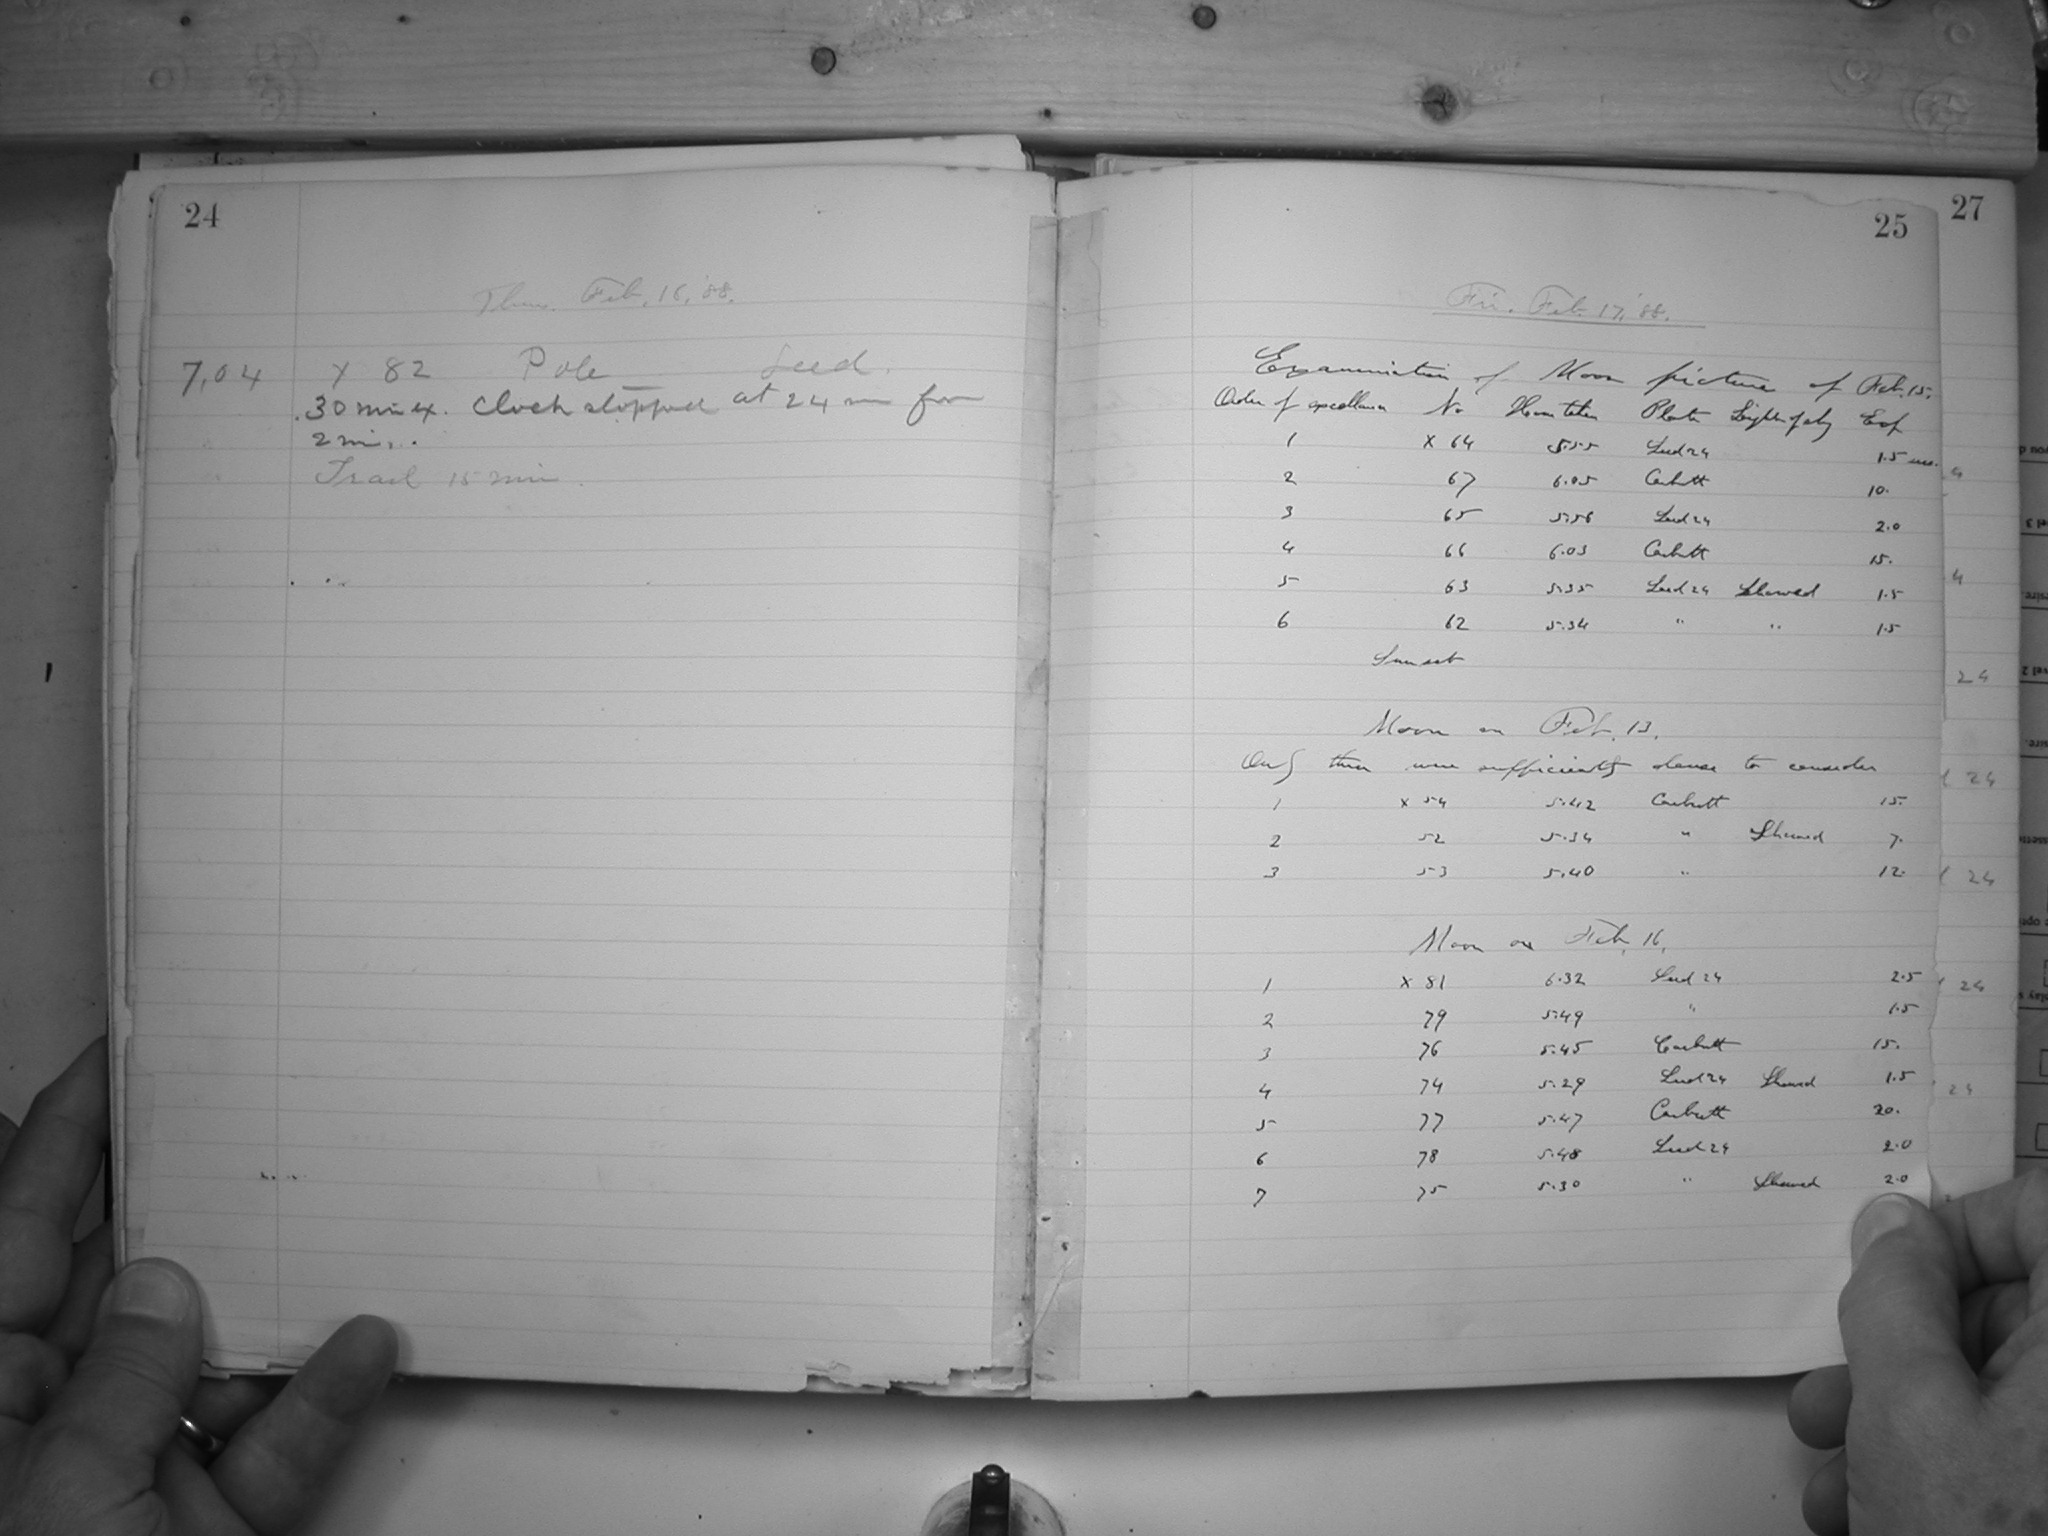 24
Thurs. Feb. 16, '88.
7.04 X 82 Pole Seed.
30 min ex. Clock stopped at 24 m for
2 min.
Trail 15 min.
25
27
Fri. Feb. 17, '88.
Examination of Moon picture of Feb. 15.
Order of excellence No Hour taken Plate Exp
1 X 64 5.55 Seed 24 1.5
2 67 6.05 Carbutt 10.
3 65 5.56 Seed 24 2.0
4 66 6.03 Carbutt 15.
5 63 5.35 Seed 24 Showed 1.5
6 62 5.34 " " 1.5
Sunset
Moon on Feb. 13.
Only three were sufficiently dense to consider
1 X 54 5.42 Carbutt 15.
2 52 5.34 " Showed 7.
3 53 5.40 " 12.
Moon on Feb. 16.
1 X 81 6.32 Seed 24 2.5
2 79 5.49 " 1.5
3 76 5.45 Carbutt 15.
4 74 5.29 Seed 24 Showed 1.5
5 77 5.47 Carbutt 20.
6 78 5.48 Seed 24 2.0
7 75 5.30 " Showed 2.0
24
24
24
24
24